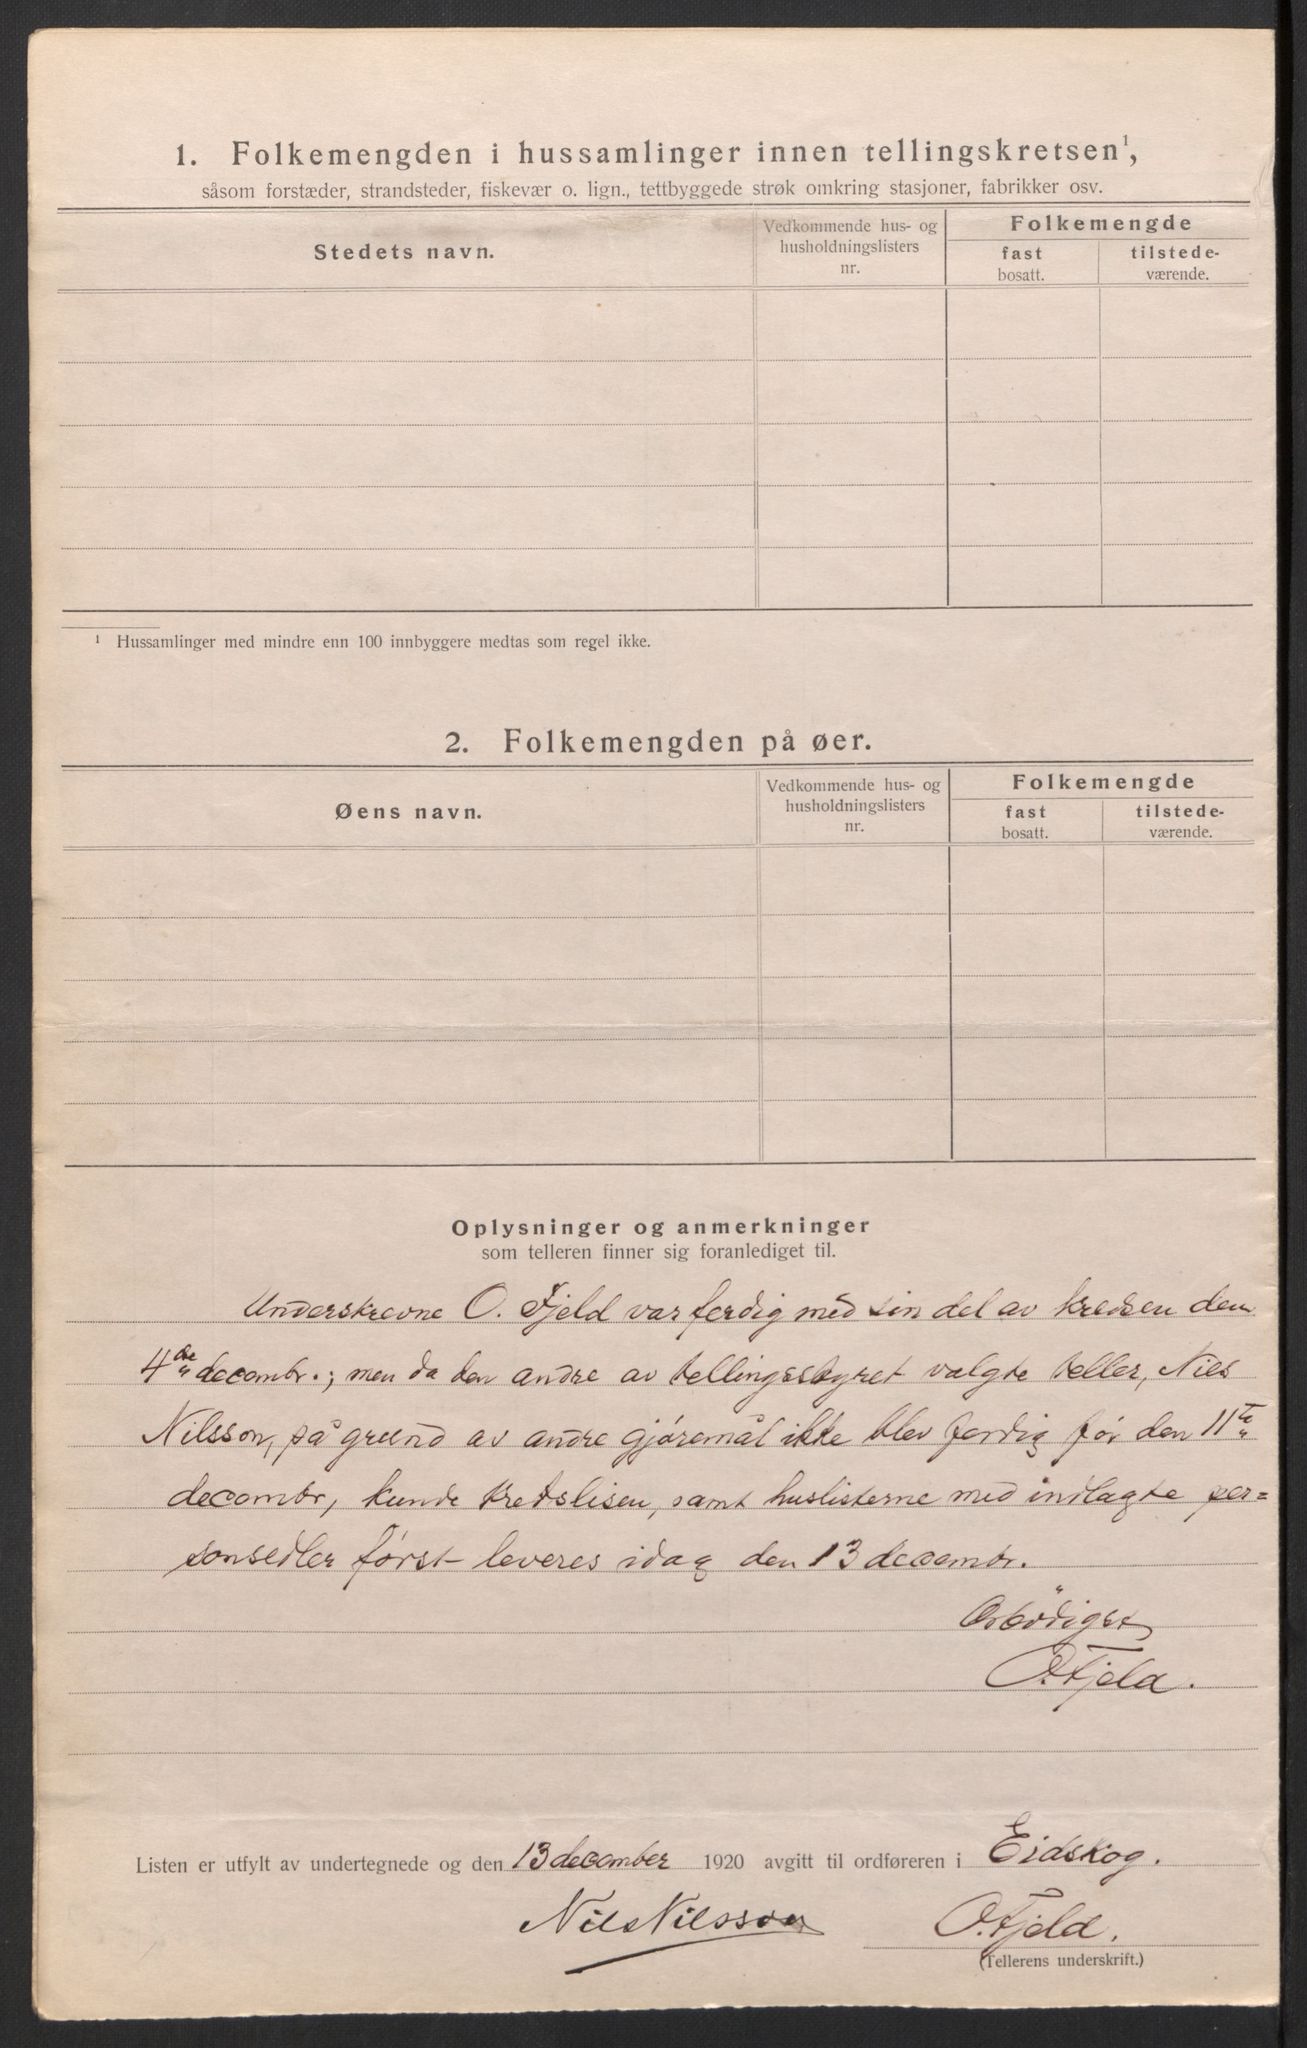 1. Folkemengden i hussamlinger innen tellingskretsen¹,
såsom forstæder, strandsteder, fiskevær o. lign., tettbyggede strøk omkring stasjoner, fabrikker osv.
Stedets navn.
Vedkommende hus- og
husholdningslisters
nr.
Folkemengde
fast
bosatt.
tilstede-
værende.
¹ Hussamlinger med mindre enn 100 innbyggere medtas som regel ikke.
2. Folkemengden på øer.
Øens navn.
Vedkommende hus- og
husholdningslisters
nr.
Folkemengde
fast
bosatt.
tilstede-
værende.
Oplysninger og anmerkninger
som telleren finner sig foranlediget til.
Underskrevne O. Fjeld var ferdig med sin del av kredsen den
4de decembr.; men da den andre av tellingsstyret valgte teller, Nils
Nilsson, på grund av andre gjøremål ikke blev ferdig før den 11te
decembr, kunde kretslisen, samt huslisterne med indlagte per=
sonsedler først leveres idag den 13 decembr.
Ærbödigst
O. Fjeld.
Listen er utfylt av undertegnede og den 13 december 1920 avgitt til ordføreren i Eidskog.
Nils Nilsson O. Fjeld.
(Tellerens underskrift.)